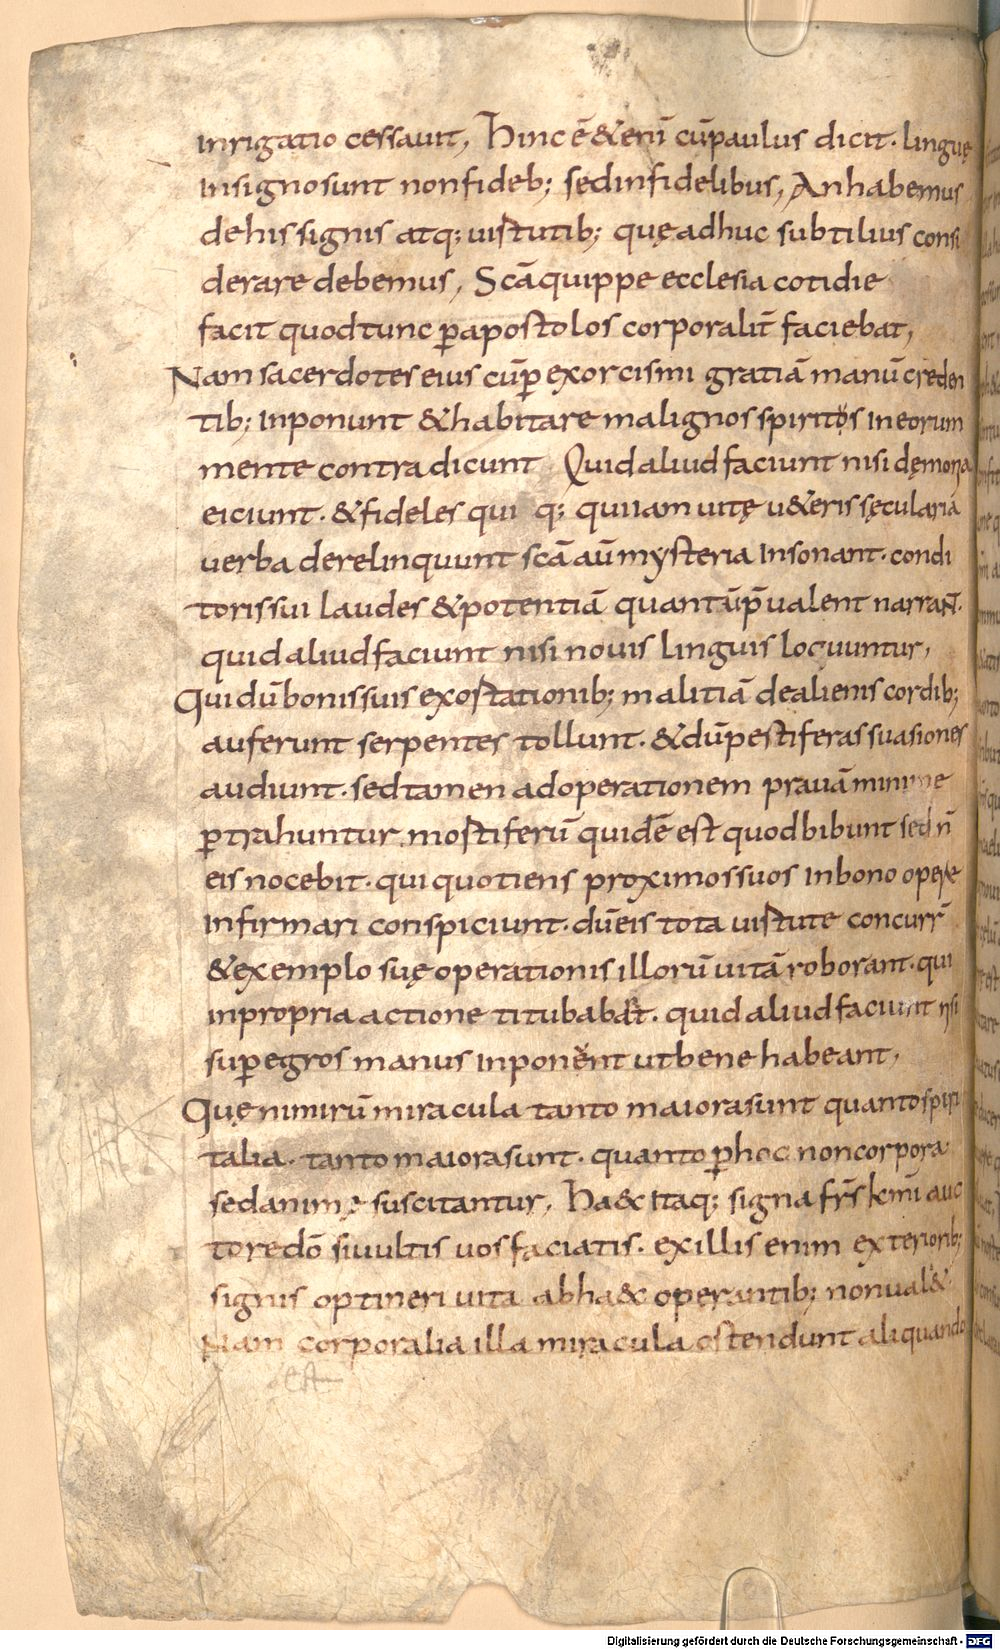 inrigatio cessauit, Hinc ē &eni cū paulus dicit. linguę
insigno sunt non fideb; sed infidelibus, An habemus
de his signis atq; uirtutib; quę adhuc subtilius consi
derare debemus, Scā quippe ecclesia cotidie
facit quod tunc p̄ apostolos corporalit̄ faciebat,
Nam sacerdotes eius cū p̄ exorcismi gratiā manū creden
tib; inponunt & habitare malignos spiritos in eorum
mente contradicunt Quid aliud faciunt nisi dęmonia
eiciunt. & fideles qui q; qui iam uitę u&eris sęcularia
uerba derelinquunt scā aū mysteria insonant. condi
toris sui laudes & potentiā quantū p̄ualent narrant.
quid aliud faciunt nisi nouis linguis locuuntur,
Qui dū bonis suis exortationib; malitiā de alienis cordib;
auferunt serpentes tollunt. & dū pestiferas suasiones
audiunt. sed tamen ad operationem prauā minime
p̄trahuntur. mortiferū quidē est quod bibunt sed n̄
eis nocebit. qui quotiens proximos suos in bono opere
infirmari conspiciunt. dū eis tota uirtute concurr̄
& exemplo suę operationis illorū uitā roborant. qui
in propria actione titubabant. quid aliud faciunt nisi
sup̄ egros manus inponent ut bene habeant,
Quę nimirū miracula tanto maiora sunt quanto spiri
talia. tanto maiora sunt. quanto p̄ hoc non corpora
sed animę suscitantur, Ha&c itaq; signa fr̄s km̄i auc
tore dō si uultis uos faciatis. ex illis enim exteriorib;
signis optineri uita ab ha&c operantib; non ual&
Nam corporalia illa miracula ostendunt aliquando
Digitalisierung gefördert durch die Deutsche Forschungsgemeinschaft - DFG